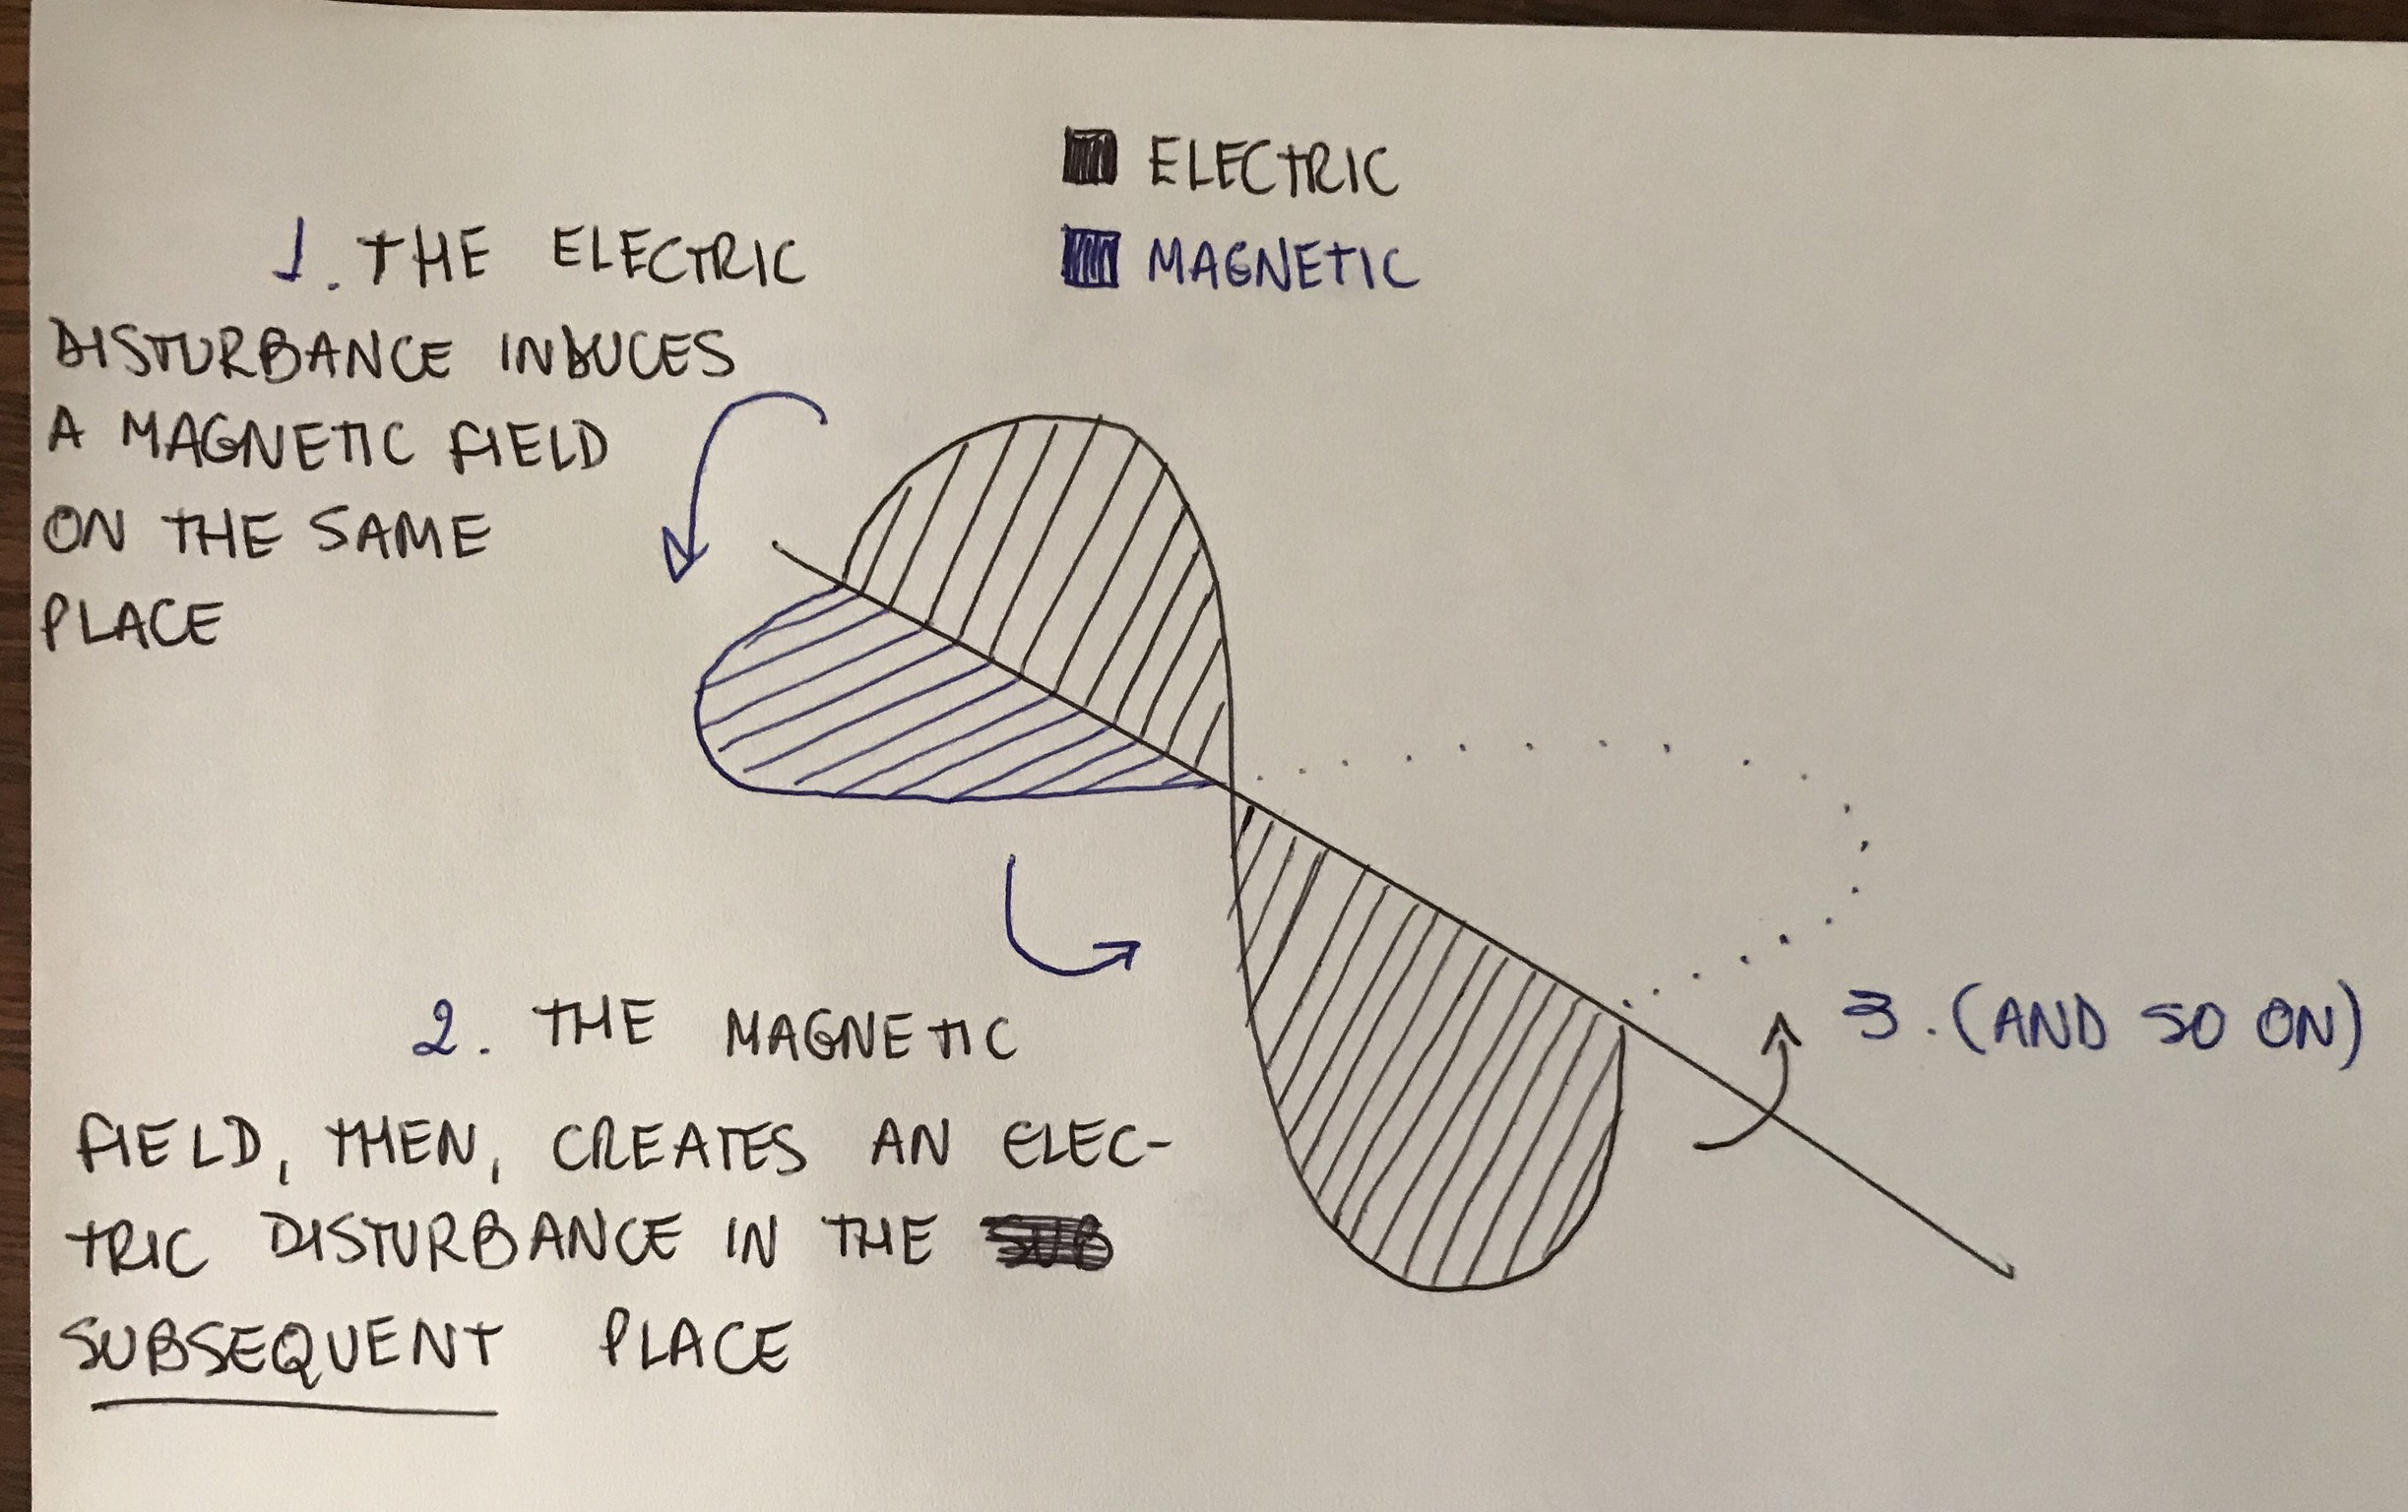 ELECTRIC
MAGNETIC
1. THE ELECTRIC
DISTURBANCE INDUCES
A MAGNETIC FIELD
ON THE SAME
PLACE
2. THE MAGNETIC
FIELD, THEN, CREATES AN ELEC-
TRIC DISTURBANCE IN THE SUB
SUBSEQUENT PLACE
3. (AND SO ON)